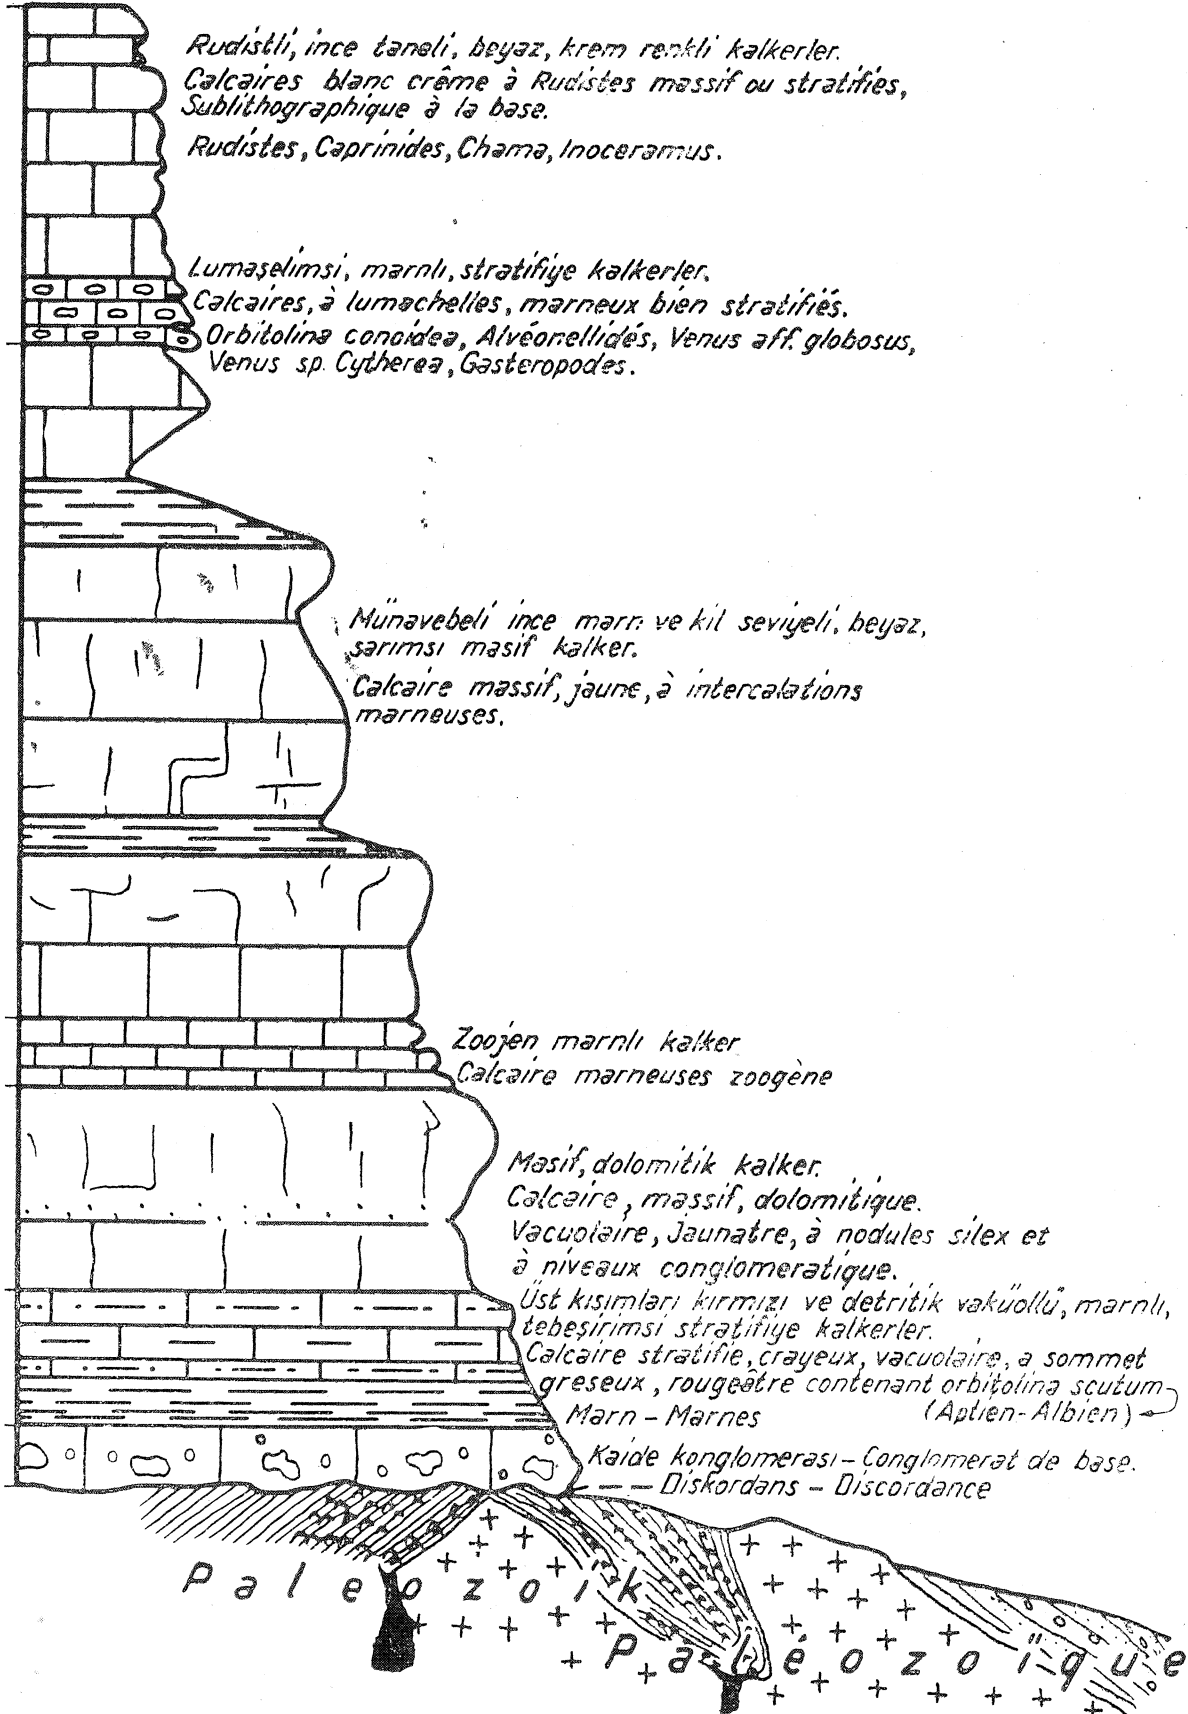 Rudistli, ince taneli, beyaz, krem renkli kalkerler.
Calcaires blanc crême à Rudistes massif ou stratifiés,
Sublithographique à la base.
Rudistes, Caprinides, Chama, Inoceramus.
Lumaşelimsi, marnlı, stratifiye kalkerler.
Calcaires, à lumachelles, marneux bien stratifiés.
Orbitolina conoidea, Alvéonellidés, Venus aff. globosus,
Venus sp. Cytherea, Gasteropodes.
Münavebeli ince marn ve kil seviyeli, beyaz,
sarımsı masif kalker.
Calcaire massif, jaune, à intercalations
marneuses.
Zoojen marnlı kalker
Calcaire marneuses zoogène
Masif, dolomitik kalker.
Calcaire, massif, dolomitique.
Vacuolaire, Jaunatre, à nodules silex et
à niveaux conglomeratique.
Üst kısımları kırmızı ve detritik vaküollü, marnlı,
tebeşirimsi stratifiye kalkerler.
Calcaire stratifie, crayeux, vacuolaire, a sommet
greseux, rougeâtre contenant orbitolina scutum
(Aptien-Albien)
Marn - Marnes
Kaide konglomerası - Conglomerat de base.
Diskordans - Discordance
Paleozoik
Paléozoïque